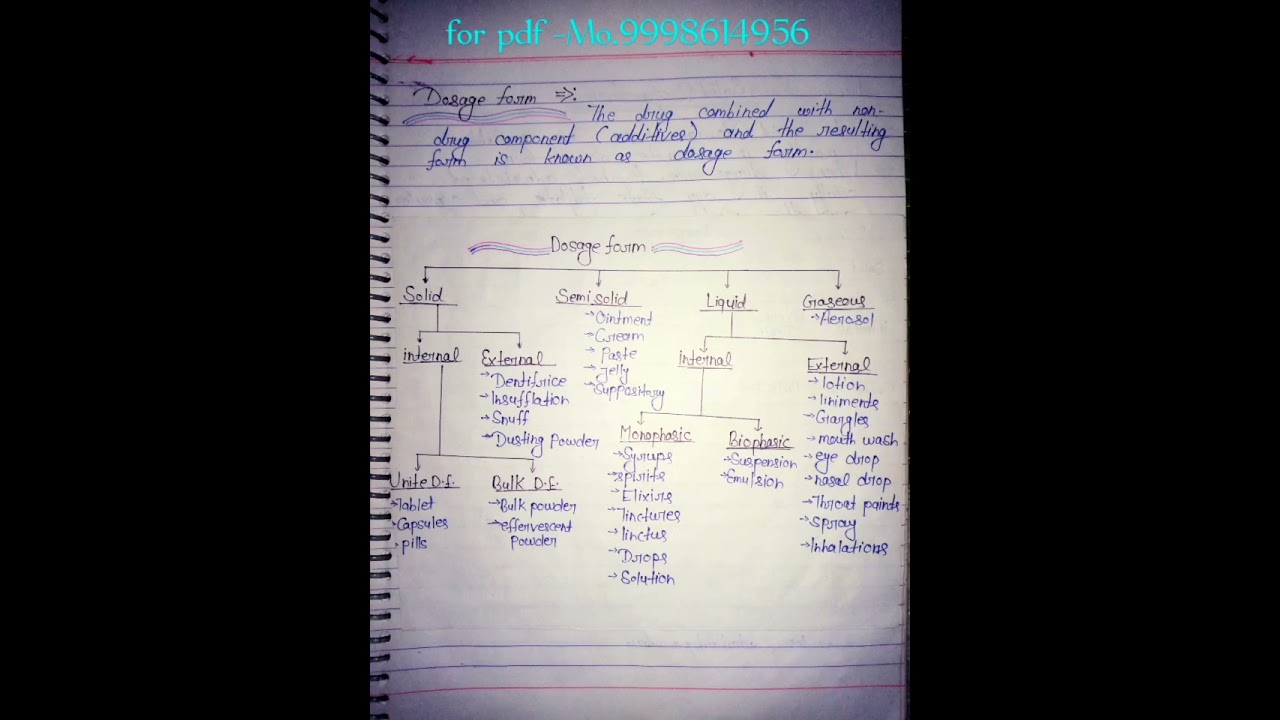 for pdf -Mo.9998614956
Dosage form ⇒:
The drug combined with non-
drug component (additives) and the resulting
form is known as dosage form.
Dosage form
Solid
Semisolid
Liquid
Gaseous
→Ointment
→Cream
→Paste
→Jelly
→Suppository
→Aerosol
internal
External
→Dentifrice
→Insufflation
→Snuff
→Dusting Powder
internal
External
→lotion
→liniments
→Gargles
→mouth wash
→eye drop
→nasal drop
→Throat paints
→Spray
→Inhalations
Unite D.f.
→Tablet
→Capsules
→pills
Bulk D.f.
→Bulk powder
→effervescent
Powder
Monophasic
→Syrups
→spirits
→Elixirs
→tinctures
→linctus
→Drops
→Solution
Biophasic
→Suspension
→Emulsion